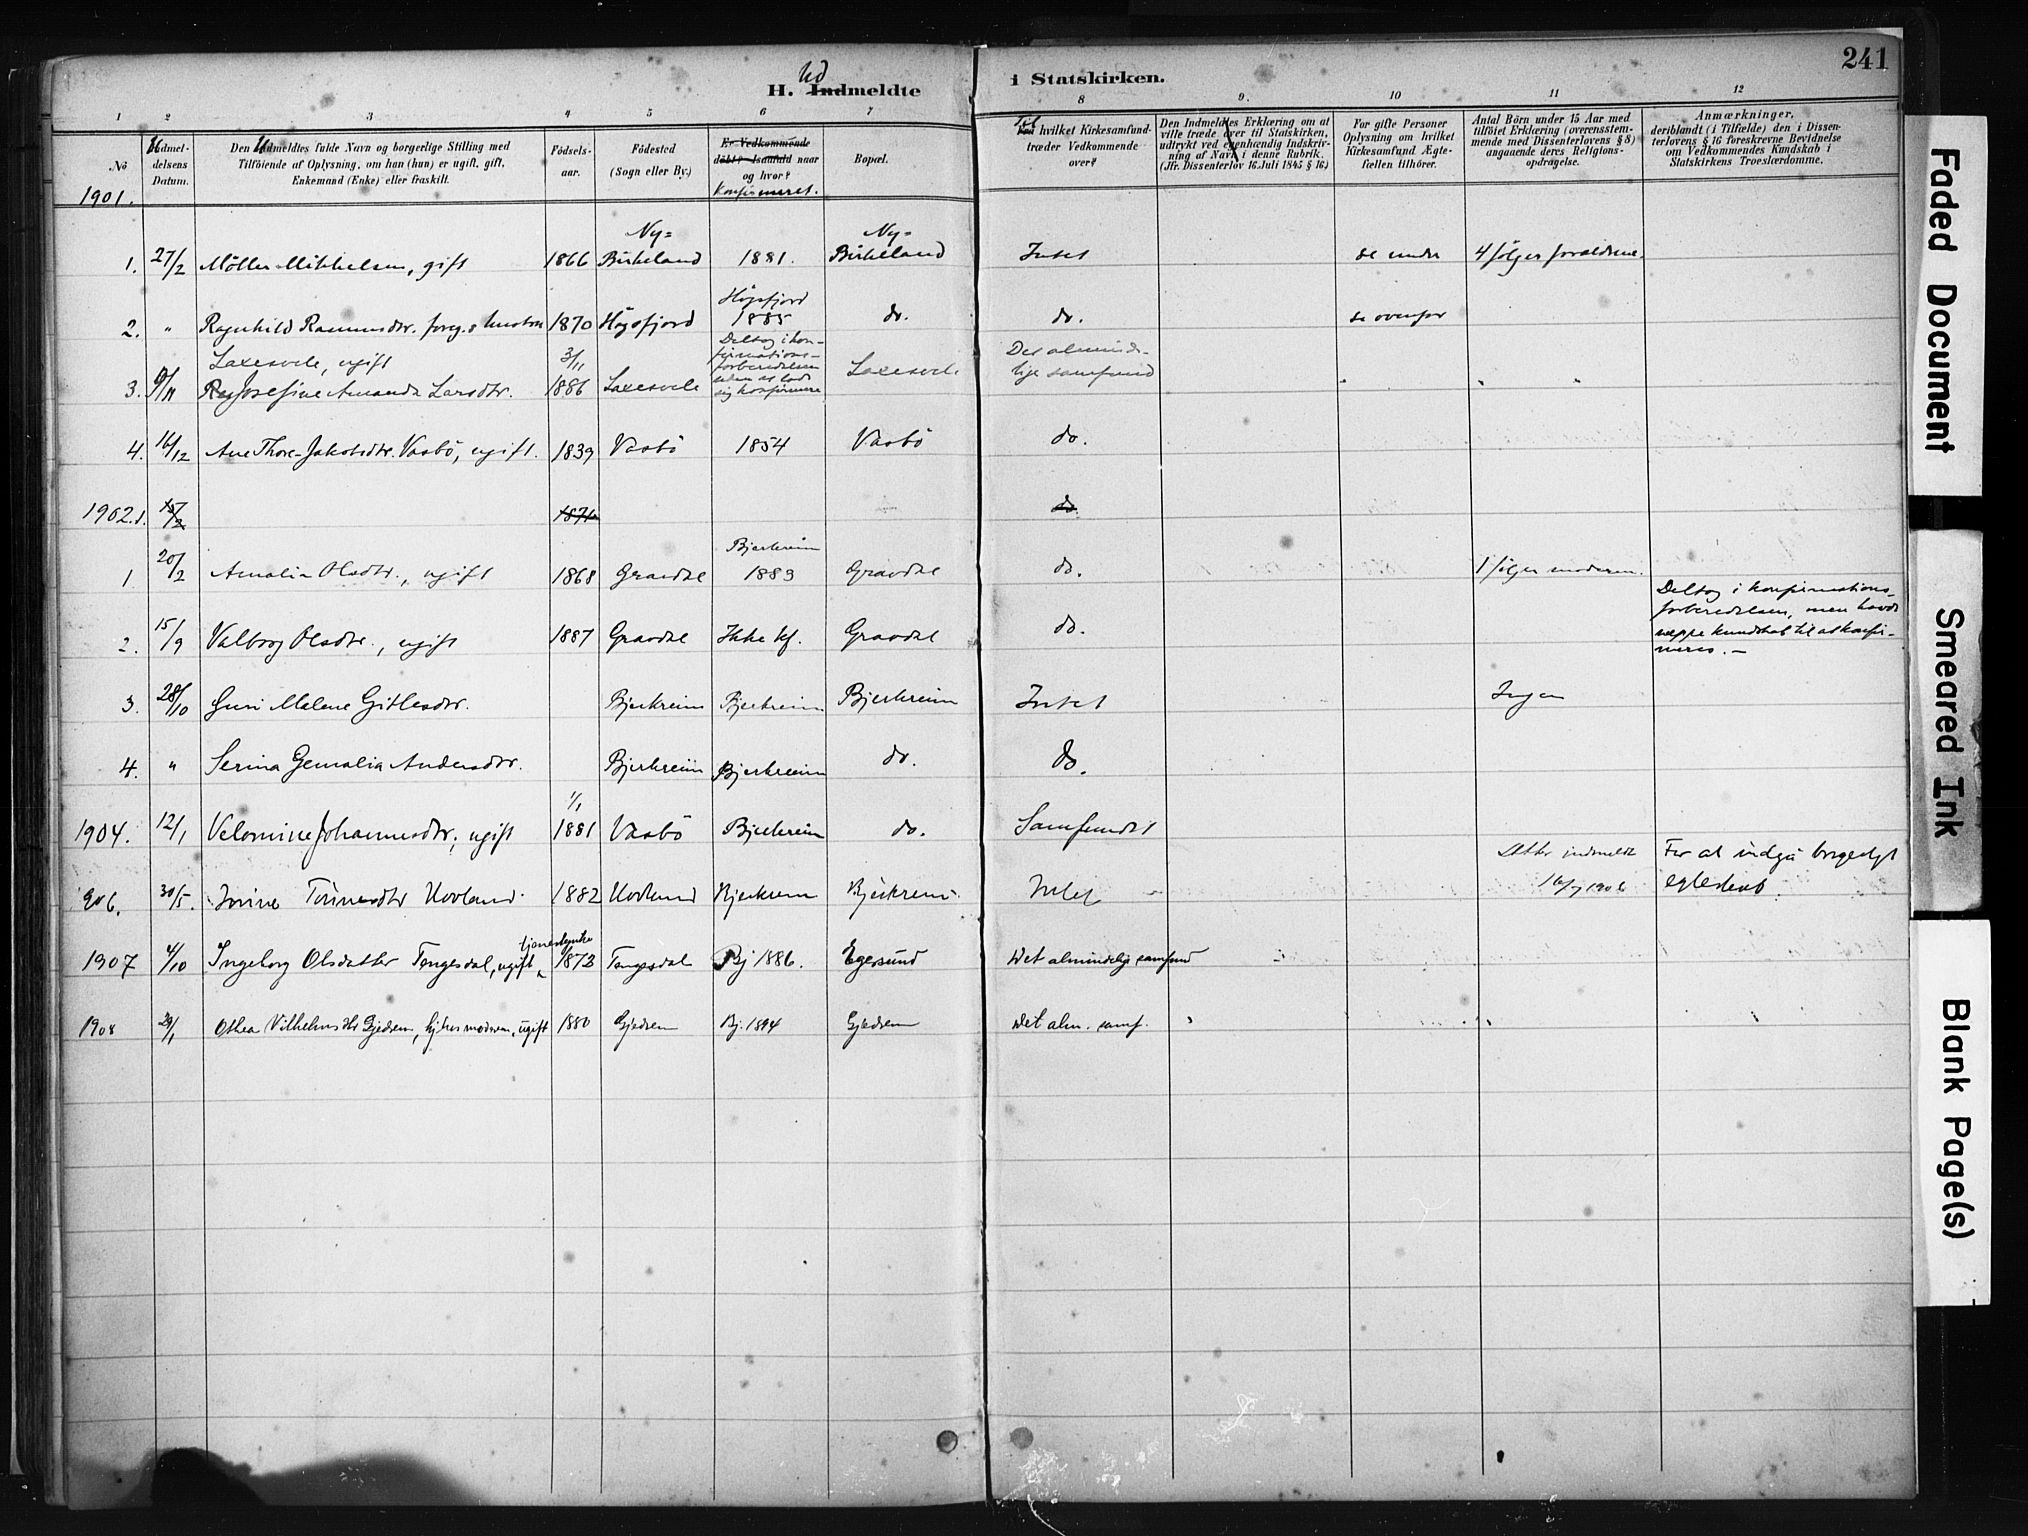 241
Ud
H. Indmeldte i Statskirken.
1 2 3 4 5 6 7 8 9. 10 11 12
No
Udmeldelsens Datum.
Den Udmeldtes fulde Navn og borgerlige Stilling med
Tilföiende af Oplysning, om han (hun) er ugift, gift,
Enkemand (Enke) eller fraskilt.
Födselsaar.
Födested
(Sogn eller By.)
Er Vedkommende
döbt? Isaafald naar
og hvor?
Konfirmeret.
Bopæl.
Til hvilket Kirkesamfund
træder Vedkommende
over?
Den Indmeldtes Erklæring om at
ville træde over til Statskirken,
udtrykt ved egenhændig Indskrivning
af Navn i denne Rubrik.
(Jfr. Dissenterlov 16. Juli 1845 § 16)
For gifte Personer
Oplysning om hvilket
Kirkesamfund Ægtefællen
tilhörer.
Antal Börn under 15 Aar med
tilföiet Erklæring (overensstemmende
med Dissenterlovens § 8)
angaaende deres Religionsopdragelse.
Anmærkninger,
deriblandt (i Tilfælde) den i Dissenterlovens
§ 16 foreskrevne Bevidnelse
om Vedkommendes Kundskab i
Statskirkens Troeslærdomme.
1901.
1. 27/2 Möller Mikkelsen, gift 1866 Ny=Birkeland 1881. Ny=Birkeland Intet se under 4 følger forældrene.
2. " Ragnhild Rasmusdtr. foreg.s hustru 1870 Högsfjord Högsfjord 1885 do. do. se ovenfor
3. 9/11 Laxesvele, ugift Josefine Amanda Larsdtr. 3/11 1886 Laxesvele Deltog i konfirmationsforberedelsen uden at lade sig konfirmere Laxesvele Det almindelige samfund " " "
4. 16/12 Ane Thore Jakobsdtr. Vasbö, ugift. 1839 Vasbö 1854 Vasbö do.
1902. 1. 15/2 1871 do.
1 20/2 Amalia Olsdtr., ugift 1868 Gravdal Bjerkreim 1883 Gravdal do. 1 følger moderen.
2. 15/9 Valborg Olsdtr., ugift 1887 Gravdal Ikke kf. Gravdal do. Deltog i konfirmationsforberedelsen, men havde neppe kundskab til at konfirmeres. —
3. 28/10 Guri Malene Gitlesdtr. Bjerkreim Bjerkreim Bjerkreim Intet Ingen
4. " Serina Gemalia Andersdtr. Bjerkreim Bjerkreim do. do.
1904. 12/1 Velomine Johannesdtr., ugift 1/1 1881 Vasbö Bjerkreim do. Samfundet
906. 30/5. Jorine Tönnesdtr Hovland. 1882 Hovland Bjerkrem Bjerkrem. Intet Datter indmeldt 16/7 1906 For at indgå borgerligt egteskab.
1907 4/10 Ingeborg Olsdatter Tengesdal, ugift, tjenestepike 1873 Tengesdal Bj 1886. Egersund Det almindelig samfund
1908 29/1 Othea Vilhelmsdtr Gjedrem, hj. hos moderen, ugift 1880 Gjedrem Bj. 1894 Gjedrem Det alm. samf. " " "
Faded Document
Smeared Ink
Blank Page(s)